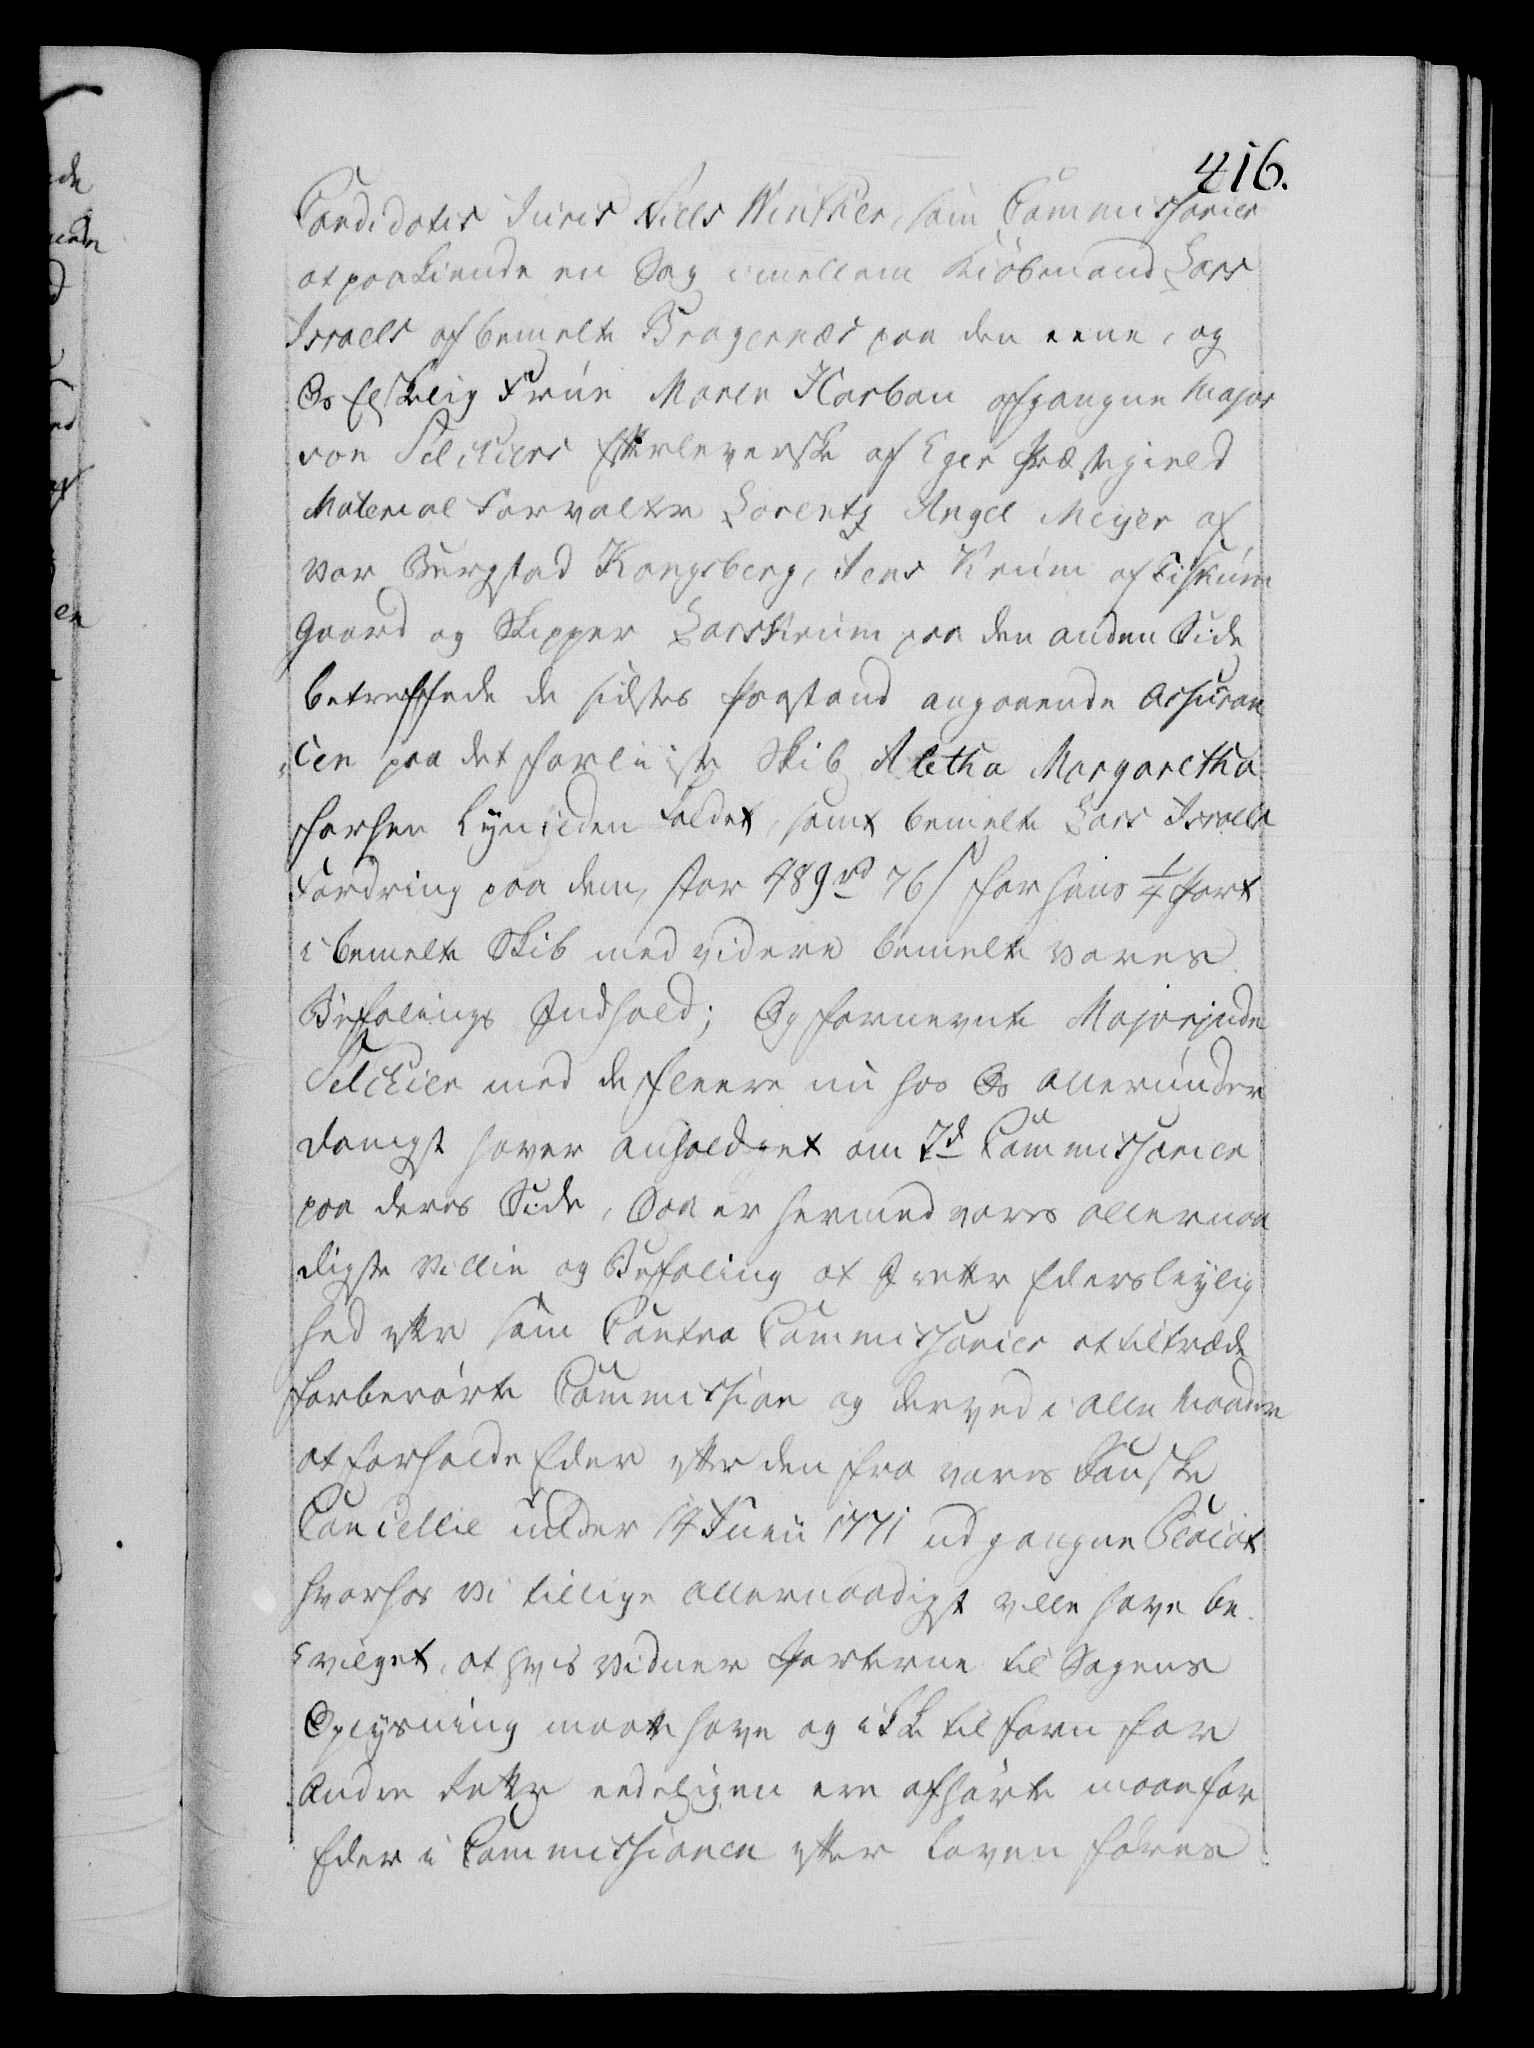 416.
Candidatis Juris Niels Winther, som Commissarier
at paakiende en Sag imellem Kiöbmand Lars
Israels af bemelte Bragernæs paa den eene, og
Os Elskelig Frue Maren Harboe afgangne Major
von Telchiers Efterleverske af Eger Præstegield
Material Forvalter Lorentz Angel Meyer af
vor Bergstad Kongsberg, Jens Krum af Fiskum
Gaard og Skipper Lars Krum paa den anden Side
betreffende de sidstes Paastand angaaende Assuran
cen paa det forliiste Skib Aletha Margaretha
forhen Lyksieden kaldet, samt bemelte Lars Israels
Fordring paa dem, stor 489 rd 76 s for hans 1/4 Part
i bemelte Skib med videre bemelte vores
Befalings Indhold; Og fornevnte Majorinde
Telchier med de fleere nu hos Os allerunder
danigst haver anholdet om 2de Commissarier
paa deres Side, Saa er hermed vores allernaa
digste Villie og Befaling at I retter Eders leylig
hed efter som Contra Commissarier at tiltræde
forberörte Commission og derved i alle Maader
at forholde Eder efter den fra vores Danske
Cancellie under 14 Junii 1771 udgangne Placat
hvorhos Vi tillige allernaadigst ville have be
vilget, at hvis Vidner Parterne til Sagens
Oplysning maatte have og ikke tilforn for
andre Retter eedeligen ere afhörte maae for
Eder i Commissionen efter Loven föres